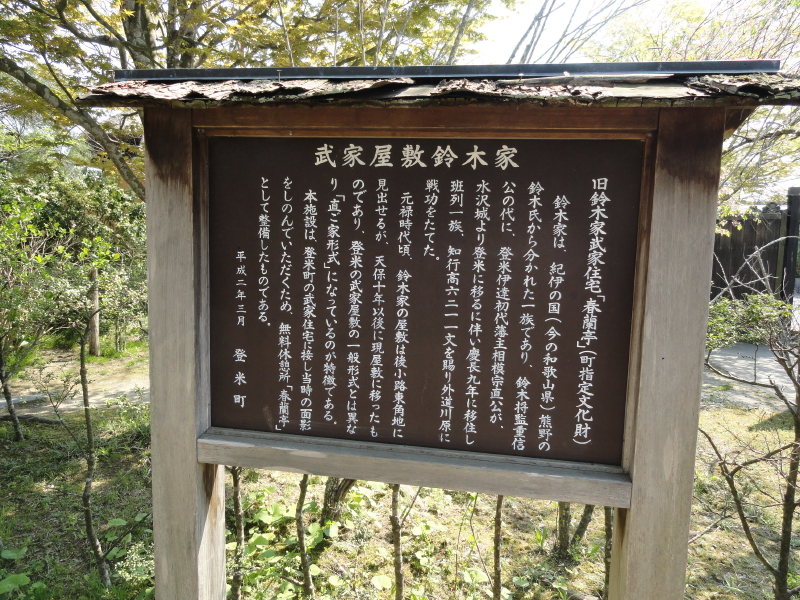 武家屋敷鈴木家
旧鈴木家武家住宅「春蘭亭」(町指定文化財)
鈴木家は、紀伊の国(今の和歌山県)熊野の
鈴木氏から分かれた一族であり、鈴木将監重信
公の代に、登米伊達初代藩主相模宗直公が、
水沢城より登米に移るに伴い慶長九年に移住し
班列一族、知行高六二一一文を賜り外道川原に
戦功をたてた。
元禄時代頃、鈴木家の屋敷は後小路東角地に
見出せるが、天保十年以後に現屋敷に移ったも
のであり、登米の武家屋敷の一般形式とは異な
り「直ご家形式」になっているのが特徴である。
本施設は、登米町の武家住宅に接し当時の面影
をしのんでいただくため、無料休憩所「春蘭亭」
として整備したものである。
平成二年三月 登米町